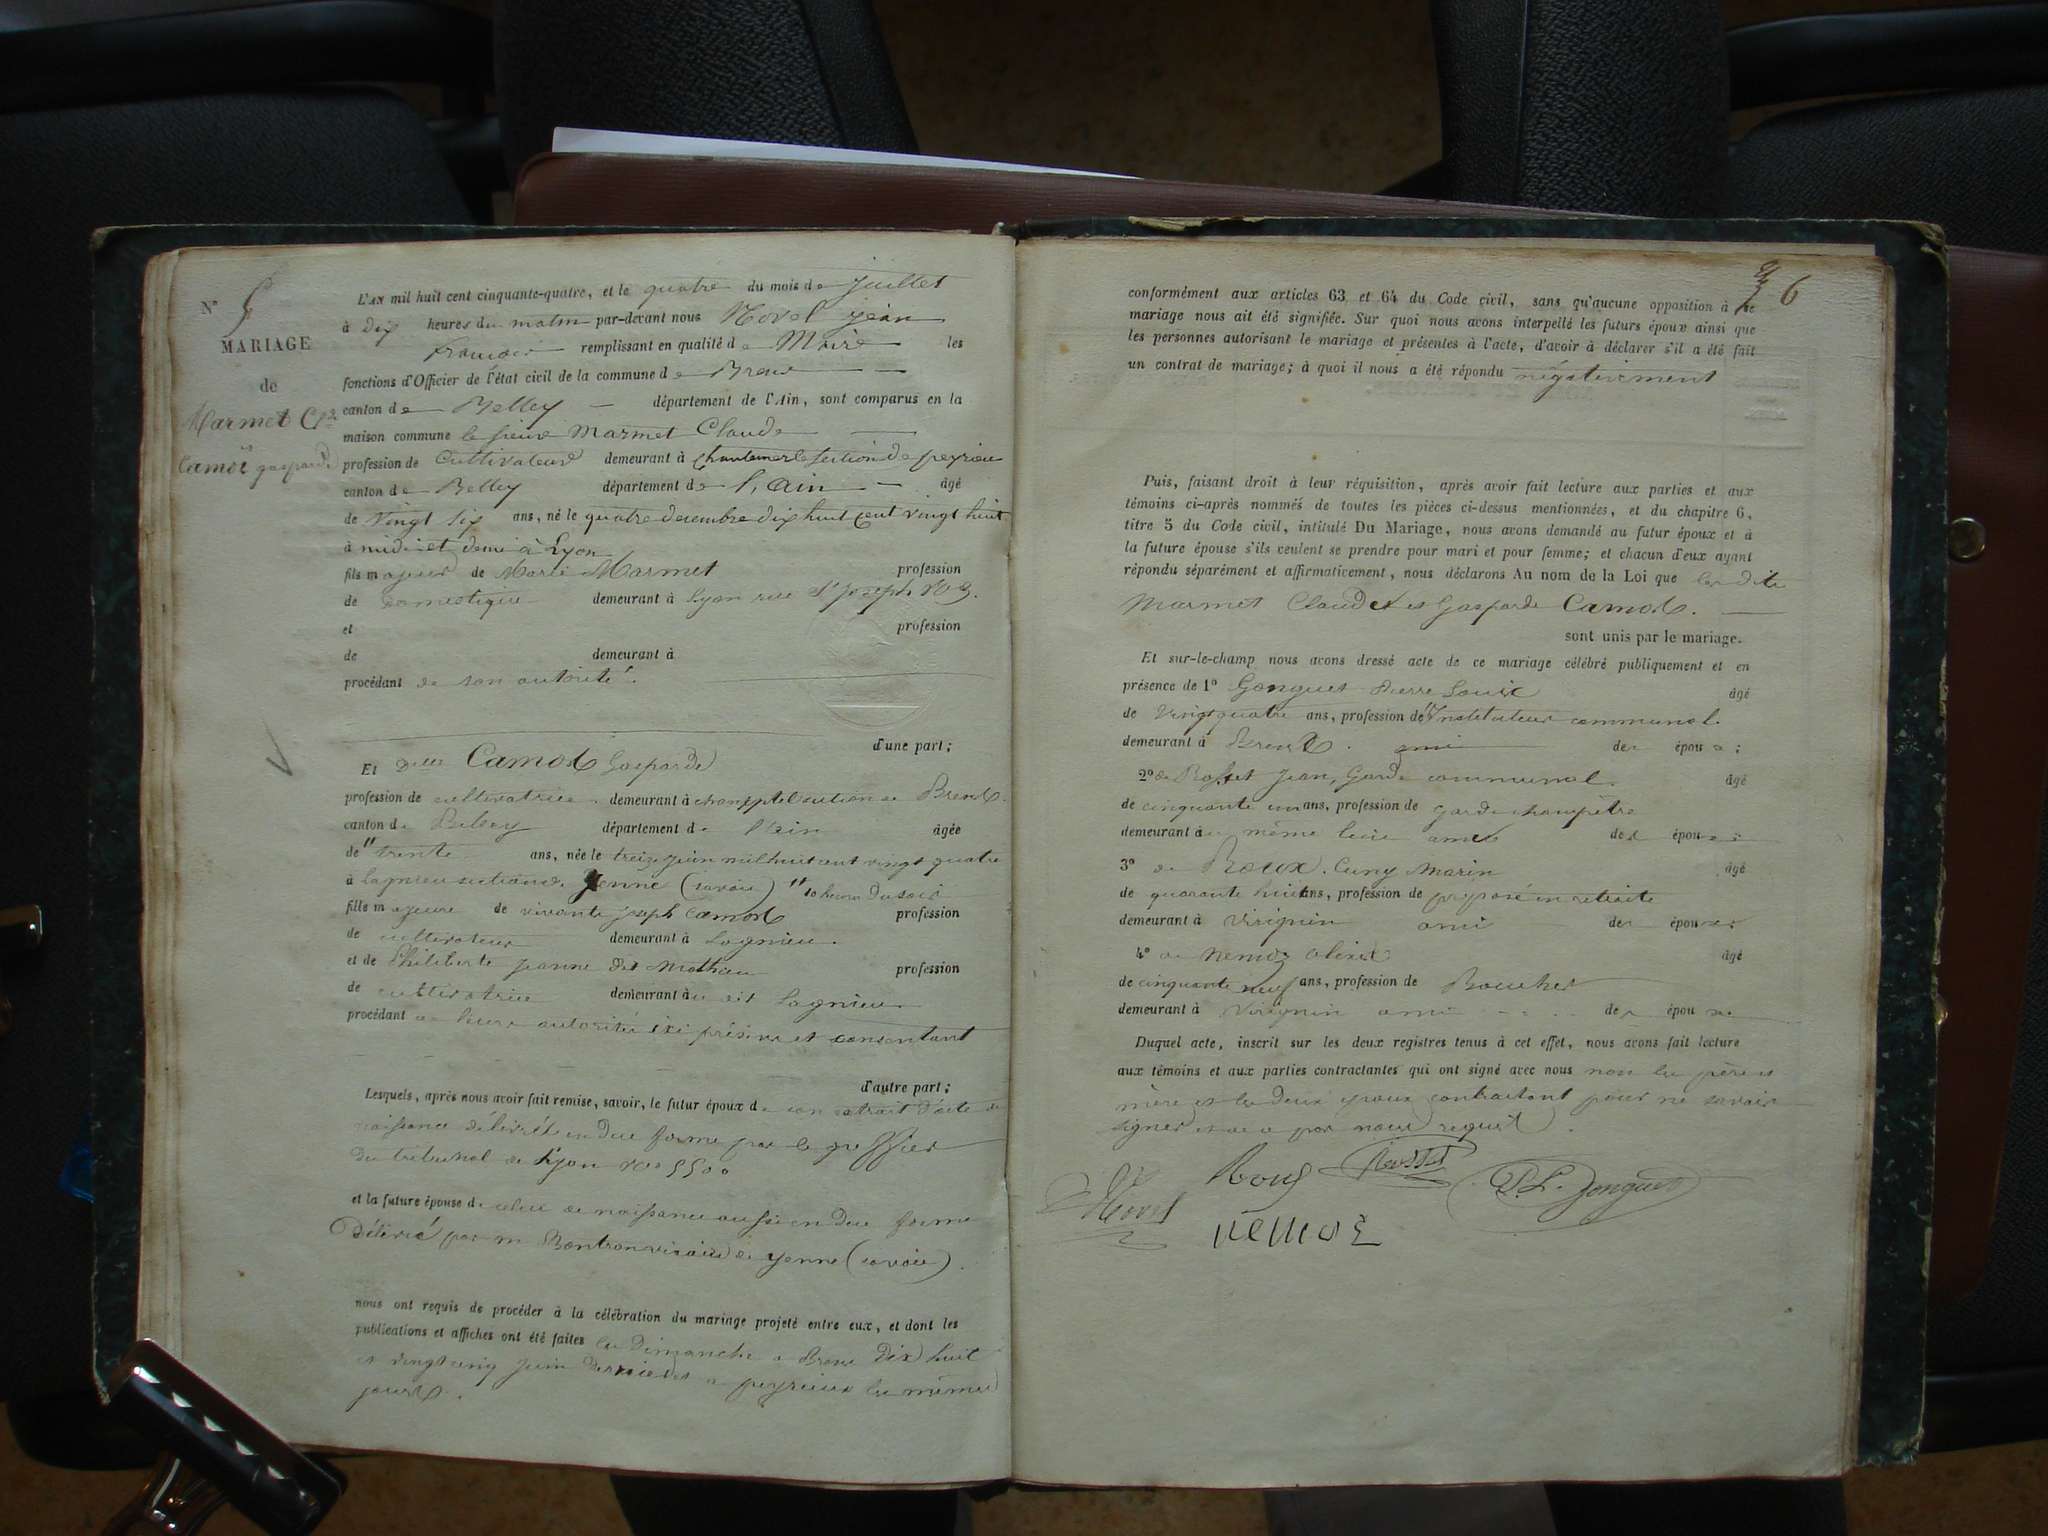 N° 5
MARIAGE
de
Marmet Cde
et
Camot gasparde
L'AN mil huit cent cinquante-quatre, et le quatre du mois de juillet
à dix heures du matin par-devant nous Novel jean
françois remplissant en qualité de Maire les
fonctions d'Officier de l'état civil de la commune de Brens
canton de Belley département de l'Ain, sont comparus en la
maison commune le sieur Marmet Claude
profession de Cultivateur demeurant à chantemerle section de peyrieu
canton de Belley département de l'ain âgé
de vingt six ans, né le quatre decembre dix huit cent vingt huit
à midi et demi à Lyon
fils majeur de Marie Marmet profession
de domestique demeurant à Lyon rue St joseph No 3.
et profession
de demeurant à
procédant de son autorité.
d'une part;
Et Delle Camot Gasparde
profession de cultivatrice demeurant à section de Brens
canton de Belley département de l'ain âgée
de trente ans, née le treize juin mil huit cent vingt quatre
à lagnieu section de Yenne (savoie) 10 heures du soir
fille majeure de vivants joseph Camot profession
de cultivateur demeurant à Lagnieu.
et de Philiberte jeanne profession
de cultivatrice demeurant au dit Lagnieu
procédant de leurs autorités ici présens et consentant
d'autre part;
Lesquels, après nous avoir fait remise, savoir, le futur époux de son extrait d'acte de
naissance délivré en due forme par le greffier
du tribunal de Lyon No 5500
et la future épouse de celui de naissance aussi en due forme
Délivré par m de yenne (savoie).
nous ont requis de procéder à la célébration du mariage projeté entre eux, et dont les
publications et affiches ont été faites les Dimanche a Brens Dix huit
et vingt cinq juin dernier et a peyrieux les mêmes
jours.
6
conformément aux articles 63 et 64 du Code civil, sans qu'aucune opposition à ce
mariage nous ait été signifiée. Sur quoi nous avons interpellé les futurs époux ainsi que
les personnes autorisant le mariage et présentes à l'acte, d'avoir à déclarer s'il a été fait
un contrat de mariage; à quoi il nous a été répondu négativement
Puis, faisant droit à leur réquisition, après avoir fait lecture aux parties et aux
témoins ci-après nommés de toutes les pièces ci-dessus mentionnées, et du chapitre 6,
titre 5 du Code civil, intitulé Du Mariage, nous avons demandé au futur époux et à
la future épouse s'ils veulent se prendre pour mari et pour femme; et chacun d'eux ayant
répondu séparément et affirmativement, nous déclarons Au nom de la Loi que les dits
Marmet Claude et Gasparde Camot.
sont unis par le mariage.
Et sur-le-champ nous avons dressé acte de ce mariage célébré publiquement et en
présence de 1° Gonguet Pierre Louis âgé
de Vingt quatre ans, profession d'Instituteur communal
demeurant à Brens. ami des époux;
2° de Rosset Jean, Garde communal. âgé
de cinquante un ans, profession de garde champêtre
demeurant au même lieu ami des époux;
3° de Roux Marin âgé
de quarante huit ans, profession de préposé en retraite
demeurant à Virignin ami des époux
4° de Nemoz alexis âgé
de cinquante neuf ans, profession de Boucher
demeurant à Virignin ami des époux
Duquel acte, inscrit sur les deux registres tenus à cet effet, nous avons fait lecture
aux témoins et aux parties contractantes qui ont signé avec nous non les père et
mère et les deux époux contractant pour ne savoir
signer et de ce par nous requis.
Novel Roux Rosset P. L. Gonguet
nemoz